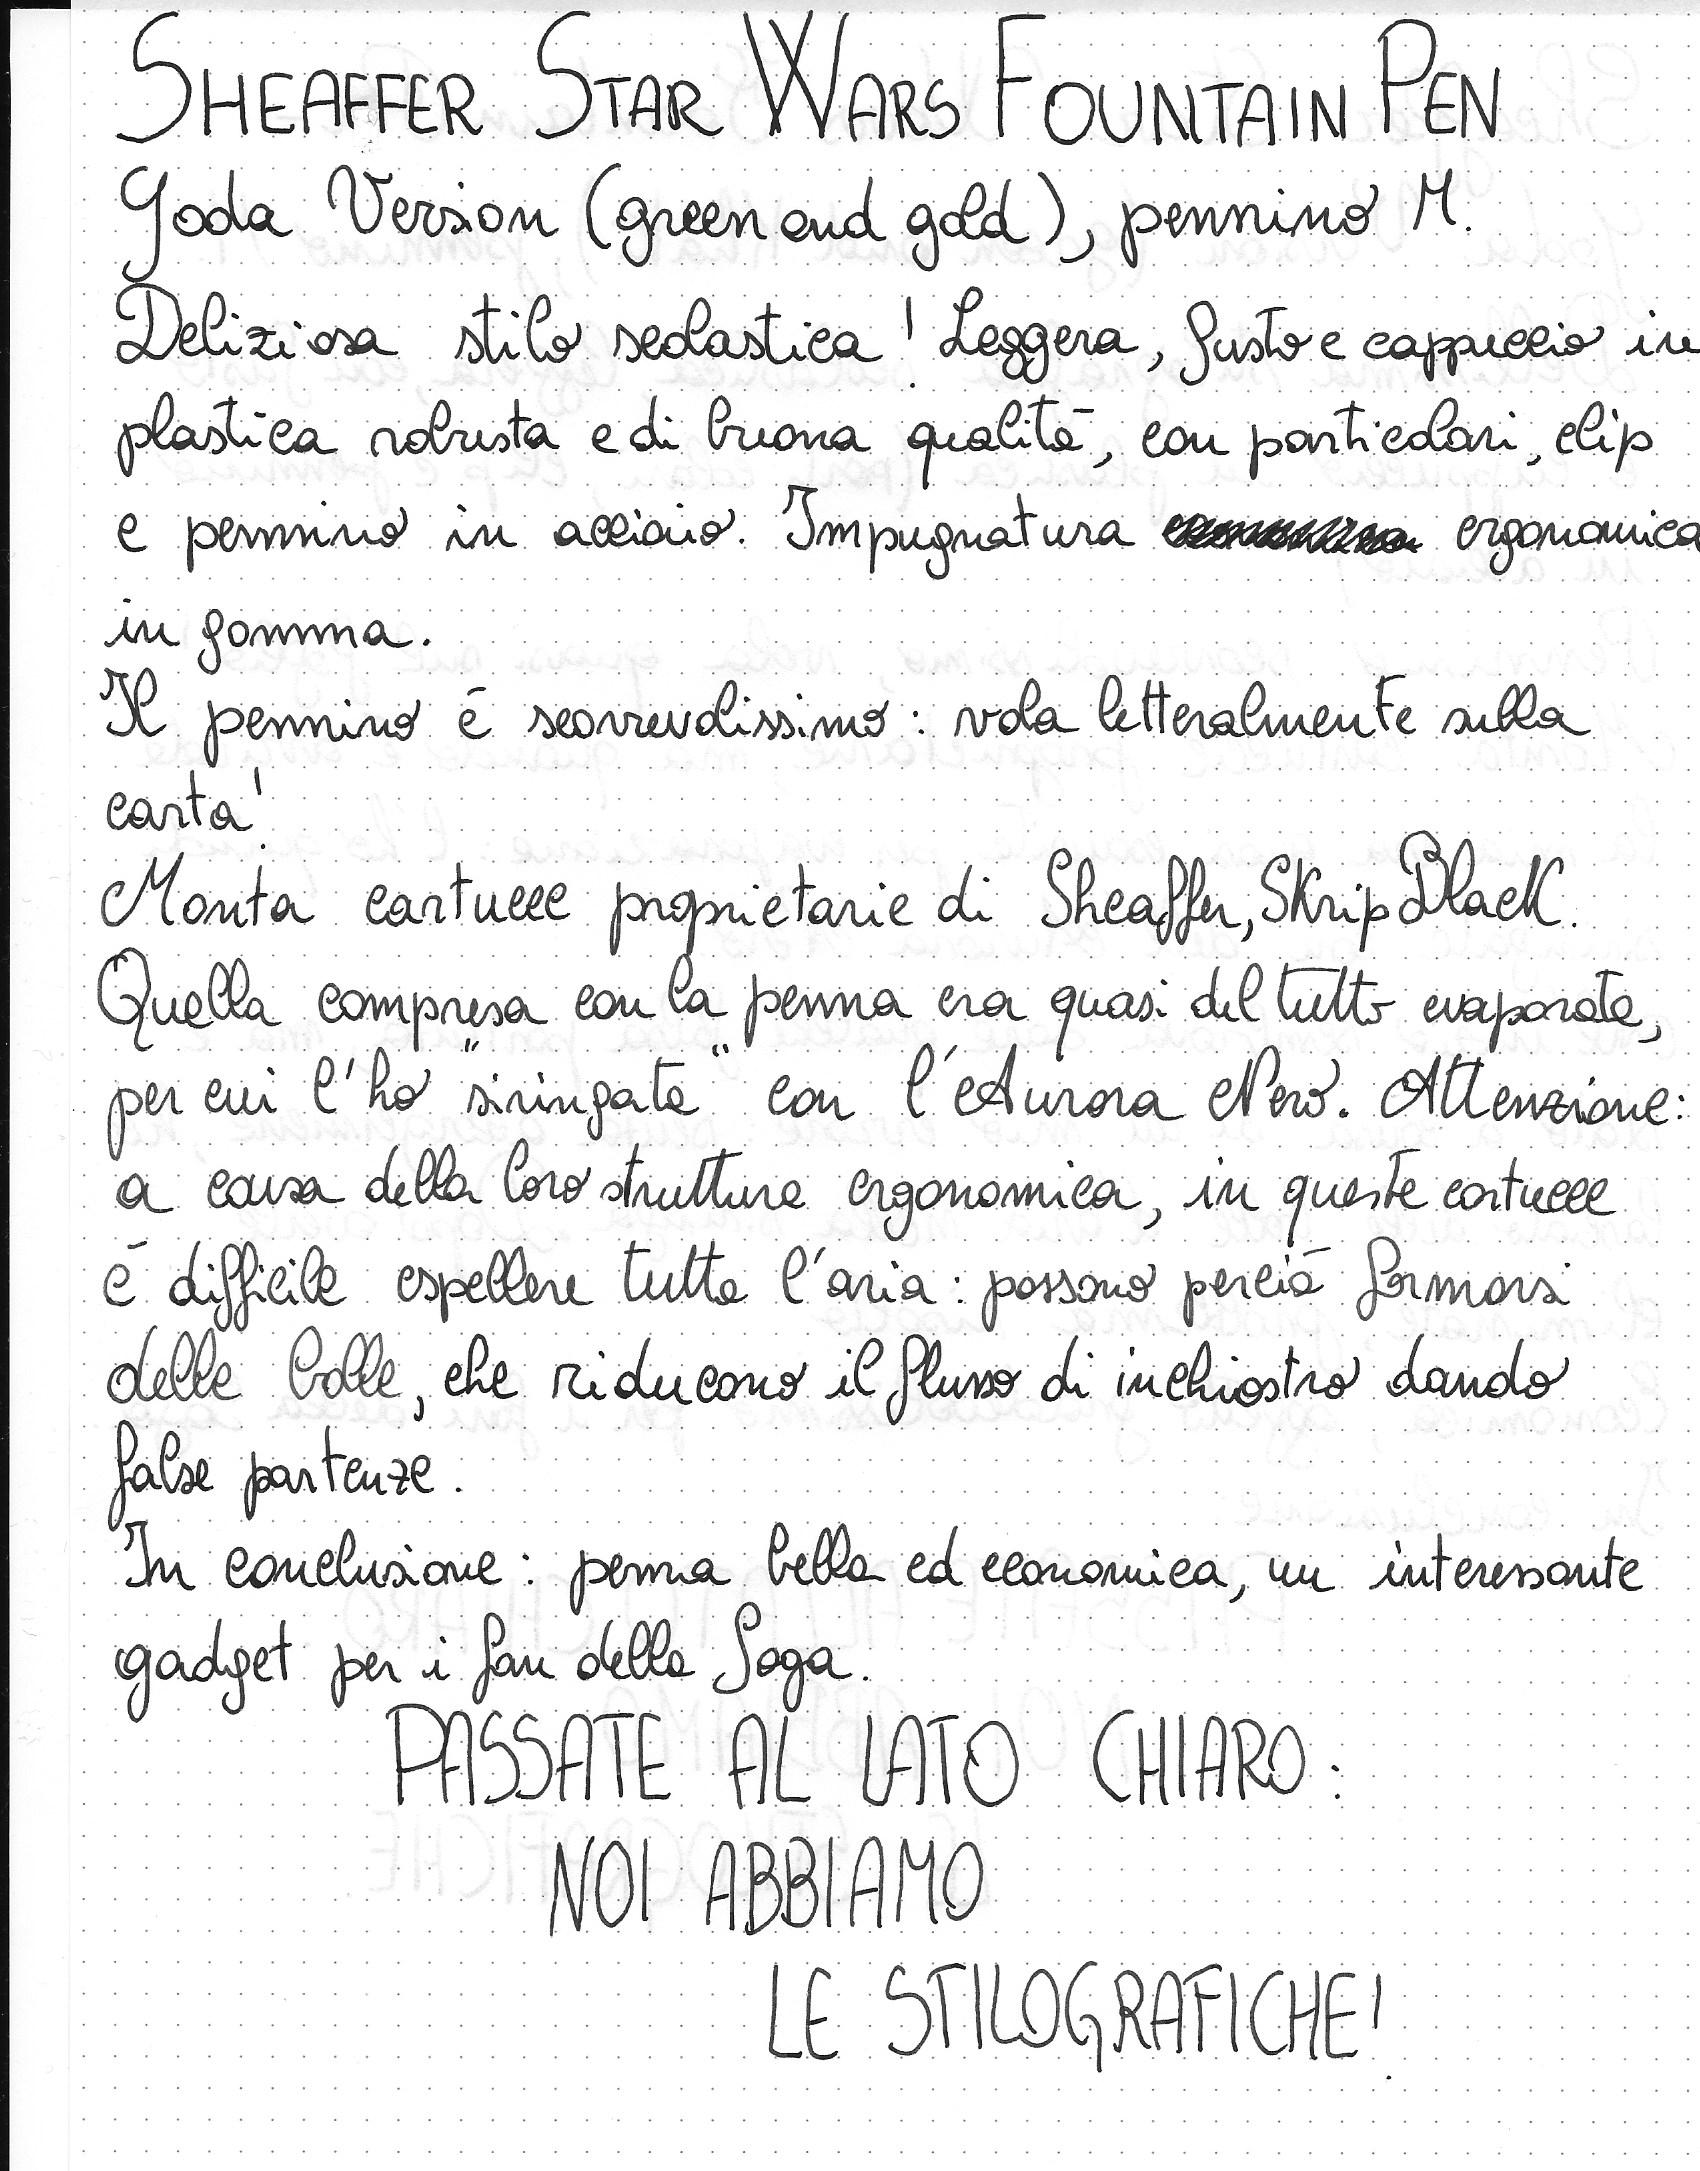 SHEAFFER STAR WARS FOUNTAIN PEN
Yoda Version (green and gold), pennino M.
Deliziosa stilo scolastica! Leggera, fusto e cappuccio in
plastica robusta e di buona qualità, con particolari, clip
e pennino in acciaio. Impugnatura ergonomica
in gomma.
Il pennino è scorrevolissimo: vola letteralmente sulla
carta!
Monta cartucce proprietarie di Sheaffer, Skrip Black.
Quella compresa con la penna era quasi del tutto evaporata,
per cui l'ho "siringata" con l'Aurora Nero. Attenzione:
a causa della loro struttura ergonomica, in queste cartucce
è difficile espellere tutta l'aria: possono perciò formarsi
delle bolle, che riducono il flusso di inchiostro dando
false partenze.
In conclusione: penna bella ed economica, un interessante
gadget per i fan della Saga.
PASSATE AL LATO CHIARO:
NOI ABBIAMO
LE STILOGRAFICHE!